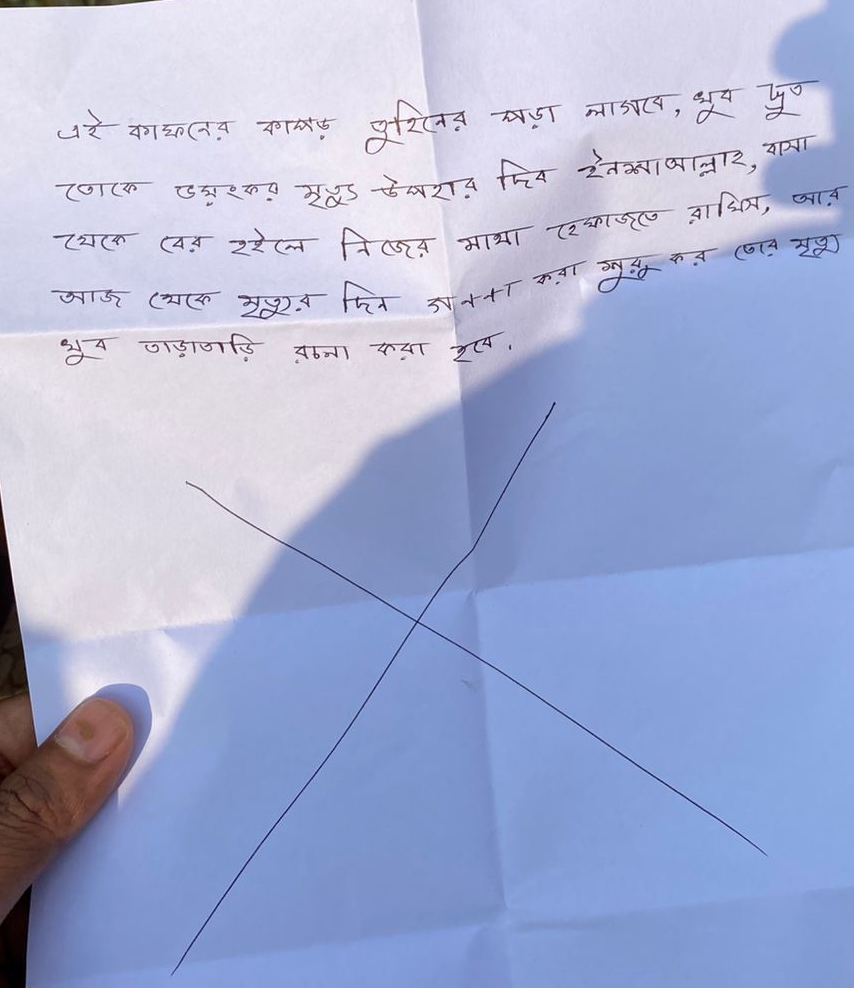 এই কাফনের কাপড় তুহিনের পড়া লাগবে, খুব দ্রুত
তোকে ভয়ংকর মৃত্যু উপহার দিব ইনশাআল্লাহ, বাসা
থেকে বের হইলে নিজের মাথা হেফাজতে রাখিস, আর
আজ থেকে মৃত্যুর দিন গননা করা শুরু কর তোর মৃত্যু
খুব তাড়াতাড়ি রচনা করা হবে.